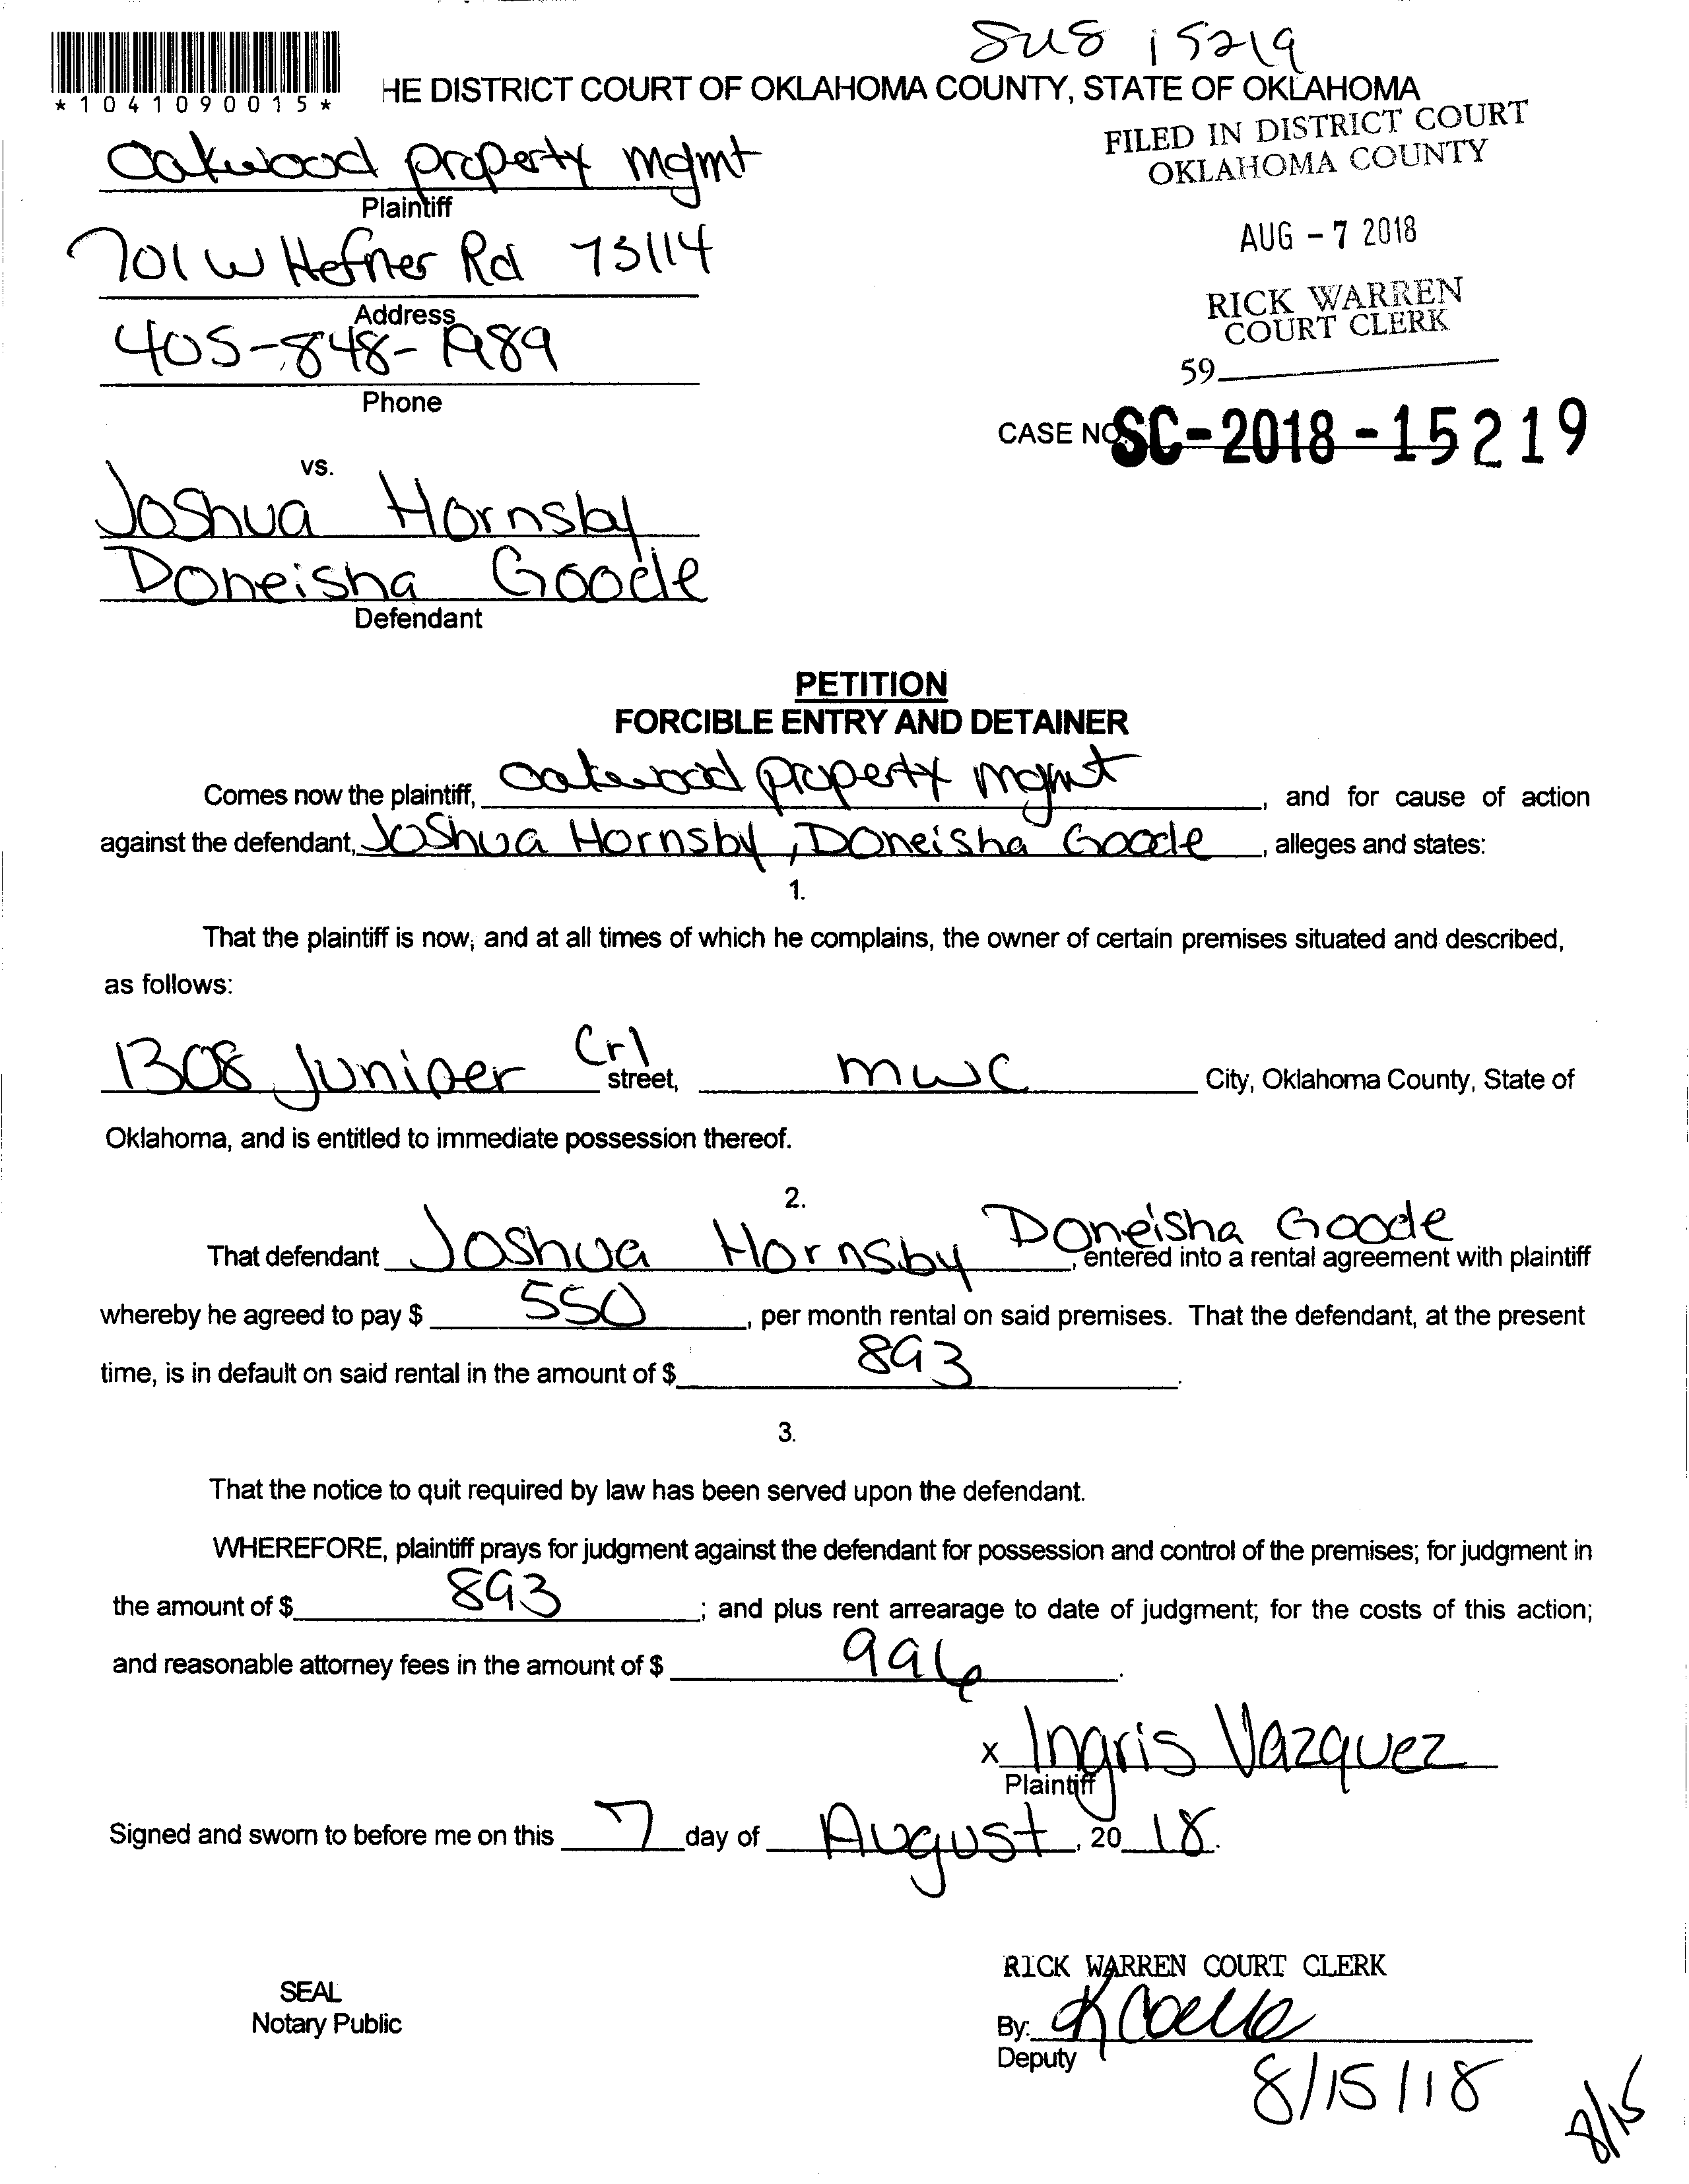 SUS 15219
*1041090015*
HE DISTRICT COURT OF OKLAHOMA COUNTY, STATE OF OKLAHOMA
FILED IN DISTRICT COURT
OKLAHOMA COUNTY
AUG - 7 2018
RICK WARREN
COURT CLERK
59
Oakwood property mgmt
Plaintiff
701 W Hefner Rd 73114
Address
405-848-1989
Phone
CASE NO. SC-2018-15219
vs.
Joshua Hornsby
Doneisha Goode
Defendant
PETITION
FORCIBLE ENTRY AND DETAINER
Comes now the plaintiff, Oakwood property mgmt, and for cause of action
against the defendant, Joshua Hornsby, Doneisha Goode, alleges and states:
1.
That the plaintiff is now, and at all times of which he complains, the owner of certain premises situated and described,
as follows:
1308 Juniper Crl street, mwc City, Oklahoma County, State of
Oklahoma, and is entitled to immediate possession thereof.
2.
That defendant Joshua Hornsby Doneisha Goode, entered into a rental agreement with plaintiff
whereby he agreed to pay $ 550, per month rental on said premises. That the defendant, at the present
time, is in default on said rental in the amount of $ 893.
3.
That the notice to quit required by law has been served upon the defendant.
WHEREFORE, plaintiff prays for judgment against the defendant for possession and control of the premises; for judgment in
the amount of $ 893; and plus rent arrearage to date of judgment; for the costs of this action;
and reasonable attorney fees in the amount of $ 996.
x Ingris Vazquez
Plaintiff
Signed and sworn to before me on this 7 day of August, 20 18.
RICK WARREN COURT CLERK
SEAL
Notary Public
By:
Deputy
8/15/18
8/15